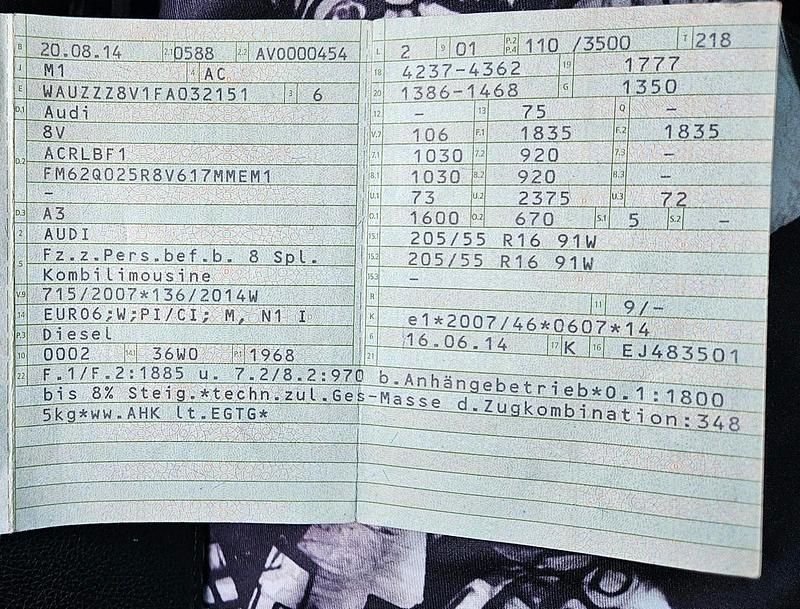 B 20.08.14 2.1 0588 2.2 AV0000454
J M1 4 AC
E WAUZZZ8V1FA032151 3 6
D.1 Audi
8V
D.2 ACRLBF1
FM62Q025R8V617MMEM1
-
D.3 A3
2 AUDI
5 Fz.z.Pers.bef.b. 8 Spl.
Kombilimousine
V.9 715/2007*136/2014W
14 EURO6;W;PI/CI; M, N1 I
P.3 Diesel
10 0002 14.1 36W0 P.1 1968
L 2 9 01 P.2 P.4 110 /3500 T 218
18 4237-4362 19 1777
20 1386-1468 G 1350
12 - 13 75 Q -
V.7 106 F.1 1835 F.2 1835
7.1 1030 7.2 920 7.3 -
8.1 1030 8.2 920 8.3 -
U.1 73 U.2 2375 U.3 72
O.1 1600 O.2 670 S.1 5 S.2 -
15.1 205/55 R16 91W
15.2 205/55 R16 91W
15.3 -
R 11 9/-
K e1*2007/46*0607*14
6 16.06.14 17 K 16 EJ483501
21
22 F.1/F.2:1885 u. 7.2/8.2:970 b.Anhängebetrieb*0.1:1800
bis 8% Steig.*techn.zul.Ges-Masse d.Zugkombination:348
5kg*ww.AHK lt.EGTG*